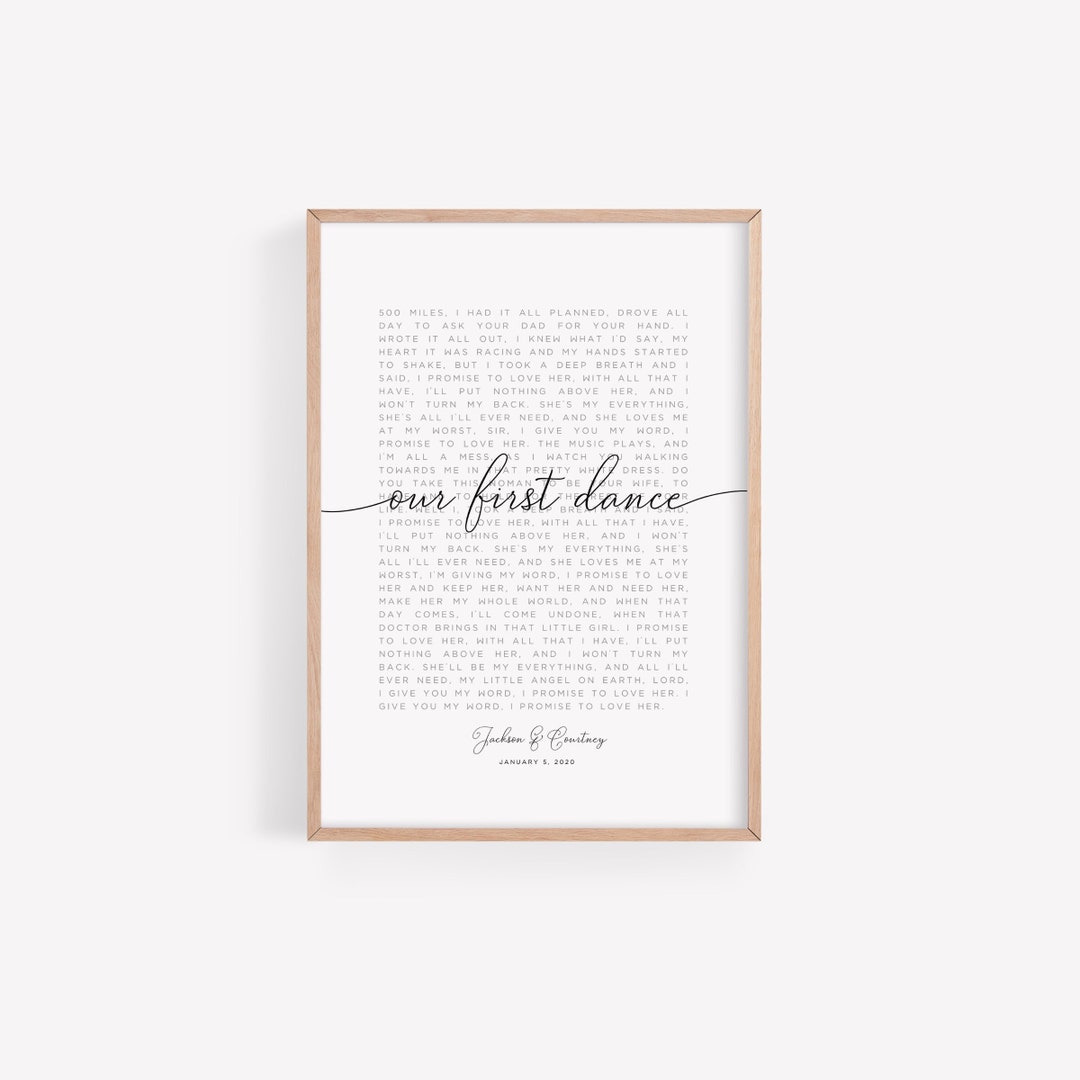 500 MILES, I HAD IT ALL PLANNED, DROVE ALL
DAY TO ASK YOUR DAD FOR YOUR HAND. I
WROTE IT ALL OUT, I KNEW WHAT I'D SAY, MY
HEART IT WAS RACING AND MY HANDS STARTED
TO SHAKE, BUT I TOOK A DEEP BREATH AND I
SAID, I PROMISE TO LOVE HER, WITH ALL THAT I
HAVE, I'LL PUT NOTHING ABOVE HER, AND I
WON'T TURN MY BACK. SHE'S MY EVERYTHING,
SHE'S ALL I'LL EVER NEED, AND SHE LOVES ME
AT MY WORST, SIR, I GIVE YOU MY WORD, I
PROMISE TO LOVE HER. THE MUSIC PLAYS, AND
I'M ALL A MESS AS I WATCH YOU WALKING
TOWARDS ME IN THAT PRETTY WHITE DRESS. DO
YOU TAKE THIS WOMAN TO BE YOUR WIFE, TO
our first dance
I PROMISE TO LOVE HER, WITH ALL THAT I HAVE,
I'LL PUT NOTHING ABOVE HER, AND I WON'T
TURN MY BACK. SHE'S MY EVERYTHING, SHE'S
ALL I'LL EVER NEED, AND SHE LOVES ME AT MY
WORST, I'M GIVING MY WORD, I PROMISE TO LOVE
HER AND KEEP HER, WANT HER AND NEED HER,
MAKE HER MY WHOLE WORLD, AND WHEN THAT
DAY COMES, I'LL COME UNDONE, WHEN THAT
DOCTOR BRINGS IN THAT LITTLE GIRL. I PROMISE
TO LOVE HER, WITH ALL THAT I HAVE, I'LL PUT
NOTHING ABOVE HER, AND I WON'T TURN MY
BACK. SHE'LL BE MY EVERYTHING, AND ALL I'LL
EVER NEED, MY LITTLE ANGEL ON EARTH, LORD,
I GIVE YOU MY WORD, I PROMISE TO LOVE HER. I
GIVE YOU MY WORD, I PROMISE TO LOVE HER.
Jackson & Courtney
JANUARY 5, 2020